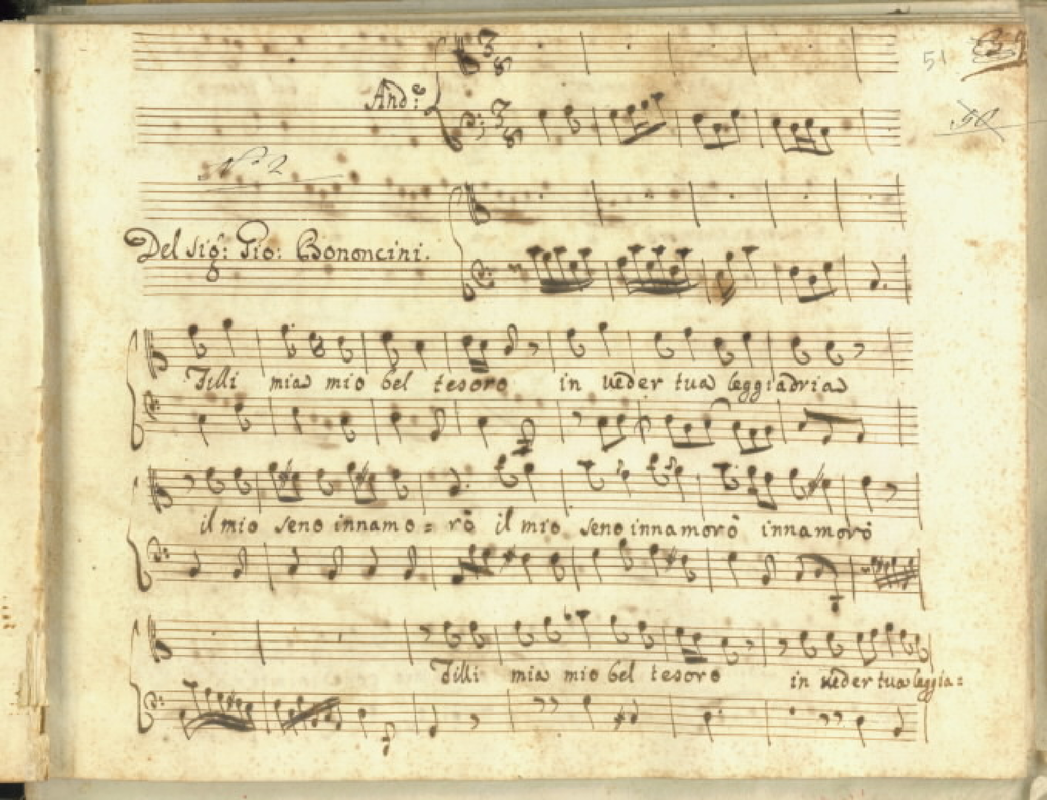 51
50
And:e
3/8
3/8
N.o 2
Del Sig: Gio: Bononcini.
Filli mia mio bel tesoro in veder tua leggiadria
il mio seno innamo = rò il mio seno innamorò innamorò
Filli mia mio bel tesoro in veder tua leggia =